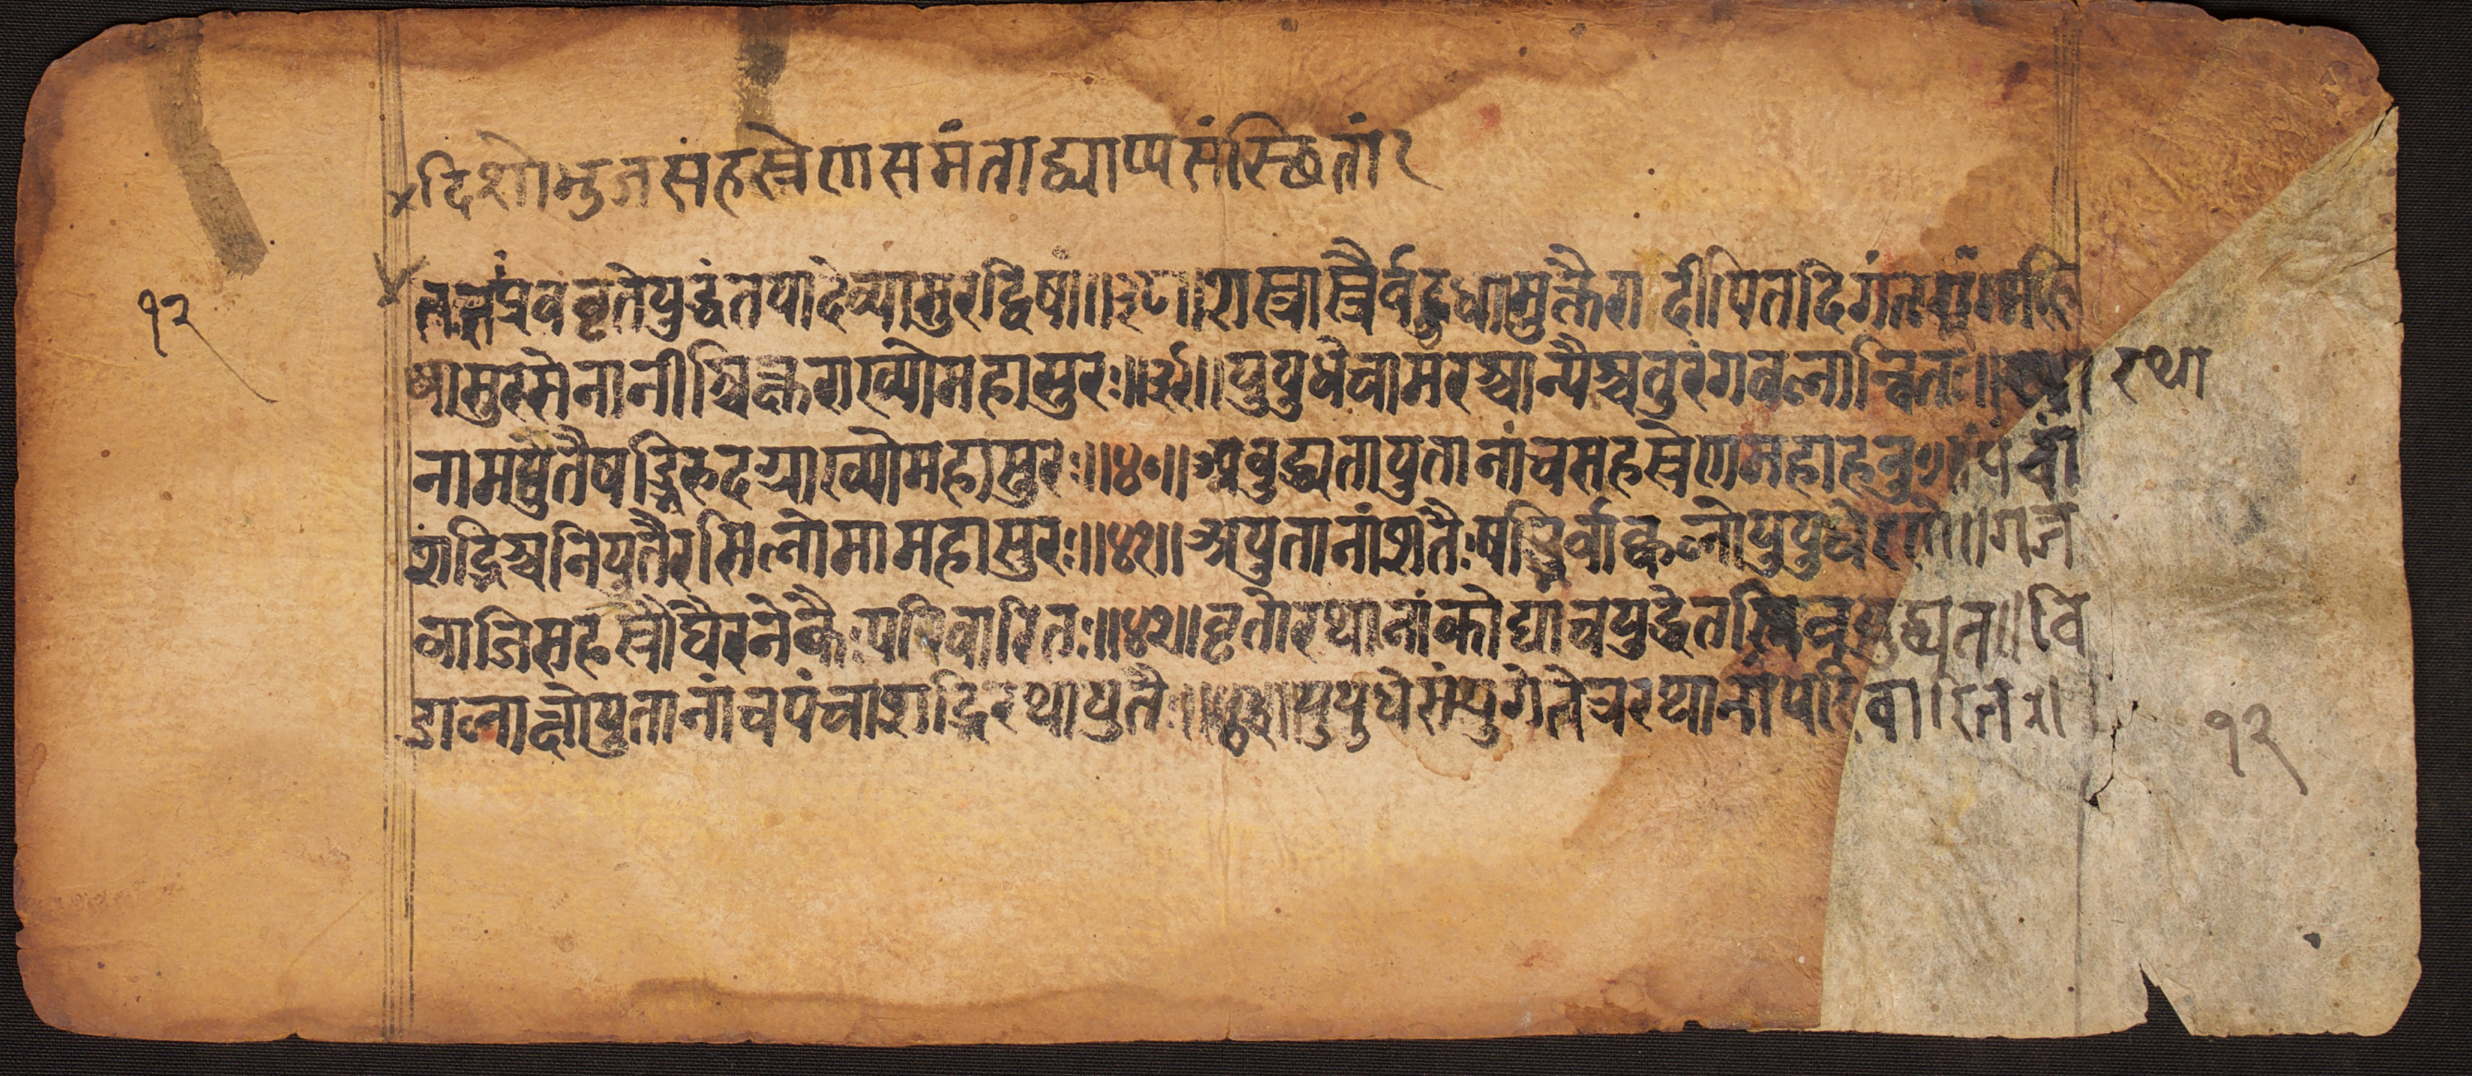 दिशोभुजसंहस्रेणसमंताद्व्याप्यसंस्छितां२
ततःप्रववृतेयुद्धंतयादेव्यासुरद्विषां॥३८॥शस्त्रास्त्रैर्वहुधामुक्तैरादीपितदिगंतरां॥महि
षासुरसेनानीश्चिक्षुराख्योमहासुरः॥३९॥युयुधेचामरश्चान्यैश्चतुरंगवलान्वितः॥ रथा
नामयुतैषड्भिरुदग्राख्योमहासुरः॥४०॥अयुद्ध्यतायुतानांचसहस्रेणमहाहनुः॥पंचा
शद्भिश्चनियुतैरसिलोमामहासुरः॥४१॥अयुतानांशतैःषड्भिर्वाष्कलोयुयुधेरणे॥गज
वाजिसहस्रौघैरनेकैःपरिवारितः॥४२॥वृतोरथानांकोट्याचयुद्धेतस्मिन्नयुद्ध्यत॥वि
डालाक्षोयुतानांचपंचाशद्भिरथायुतैः॥४३॥युयुधेसंयुगेतत्ररथानांपरिवारितः॥
१२
१२